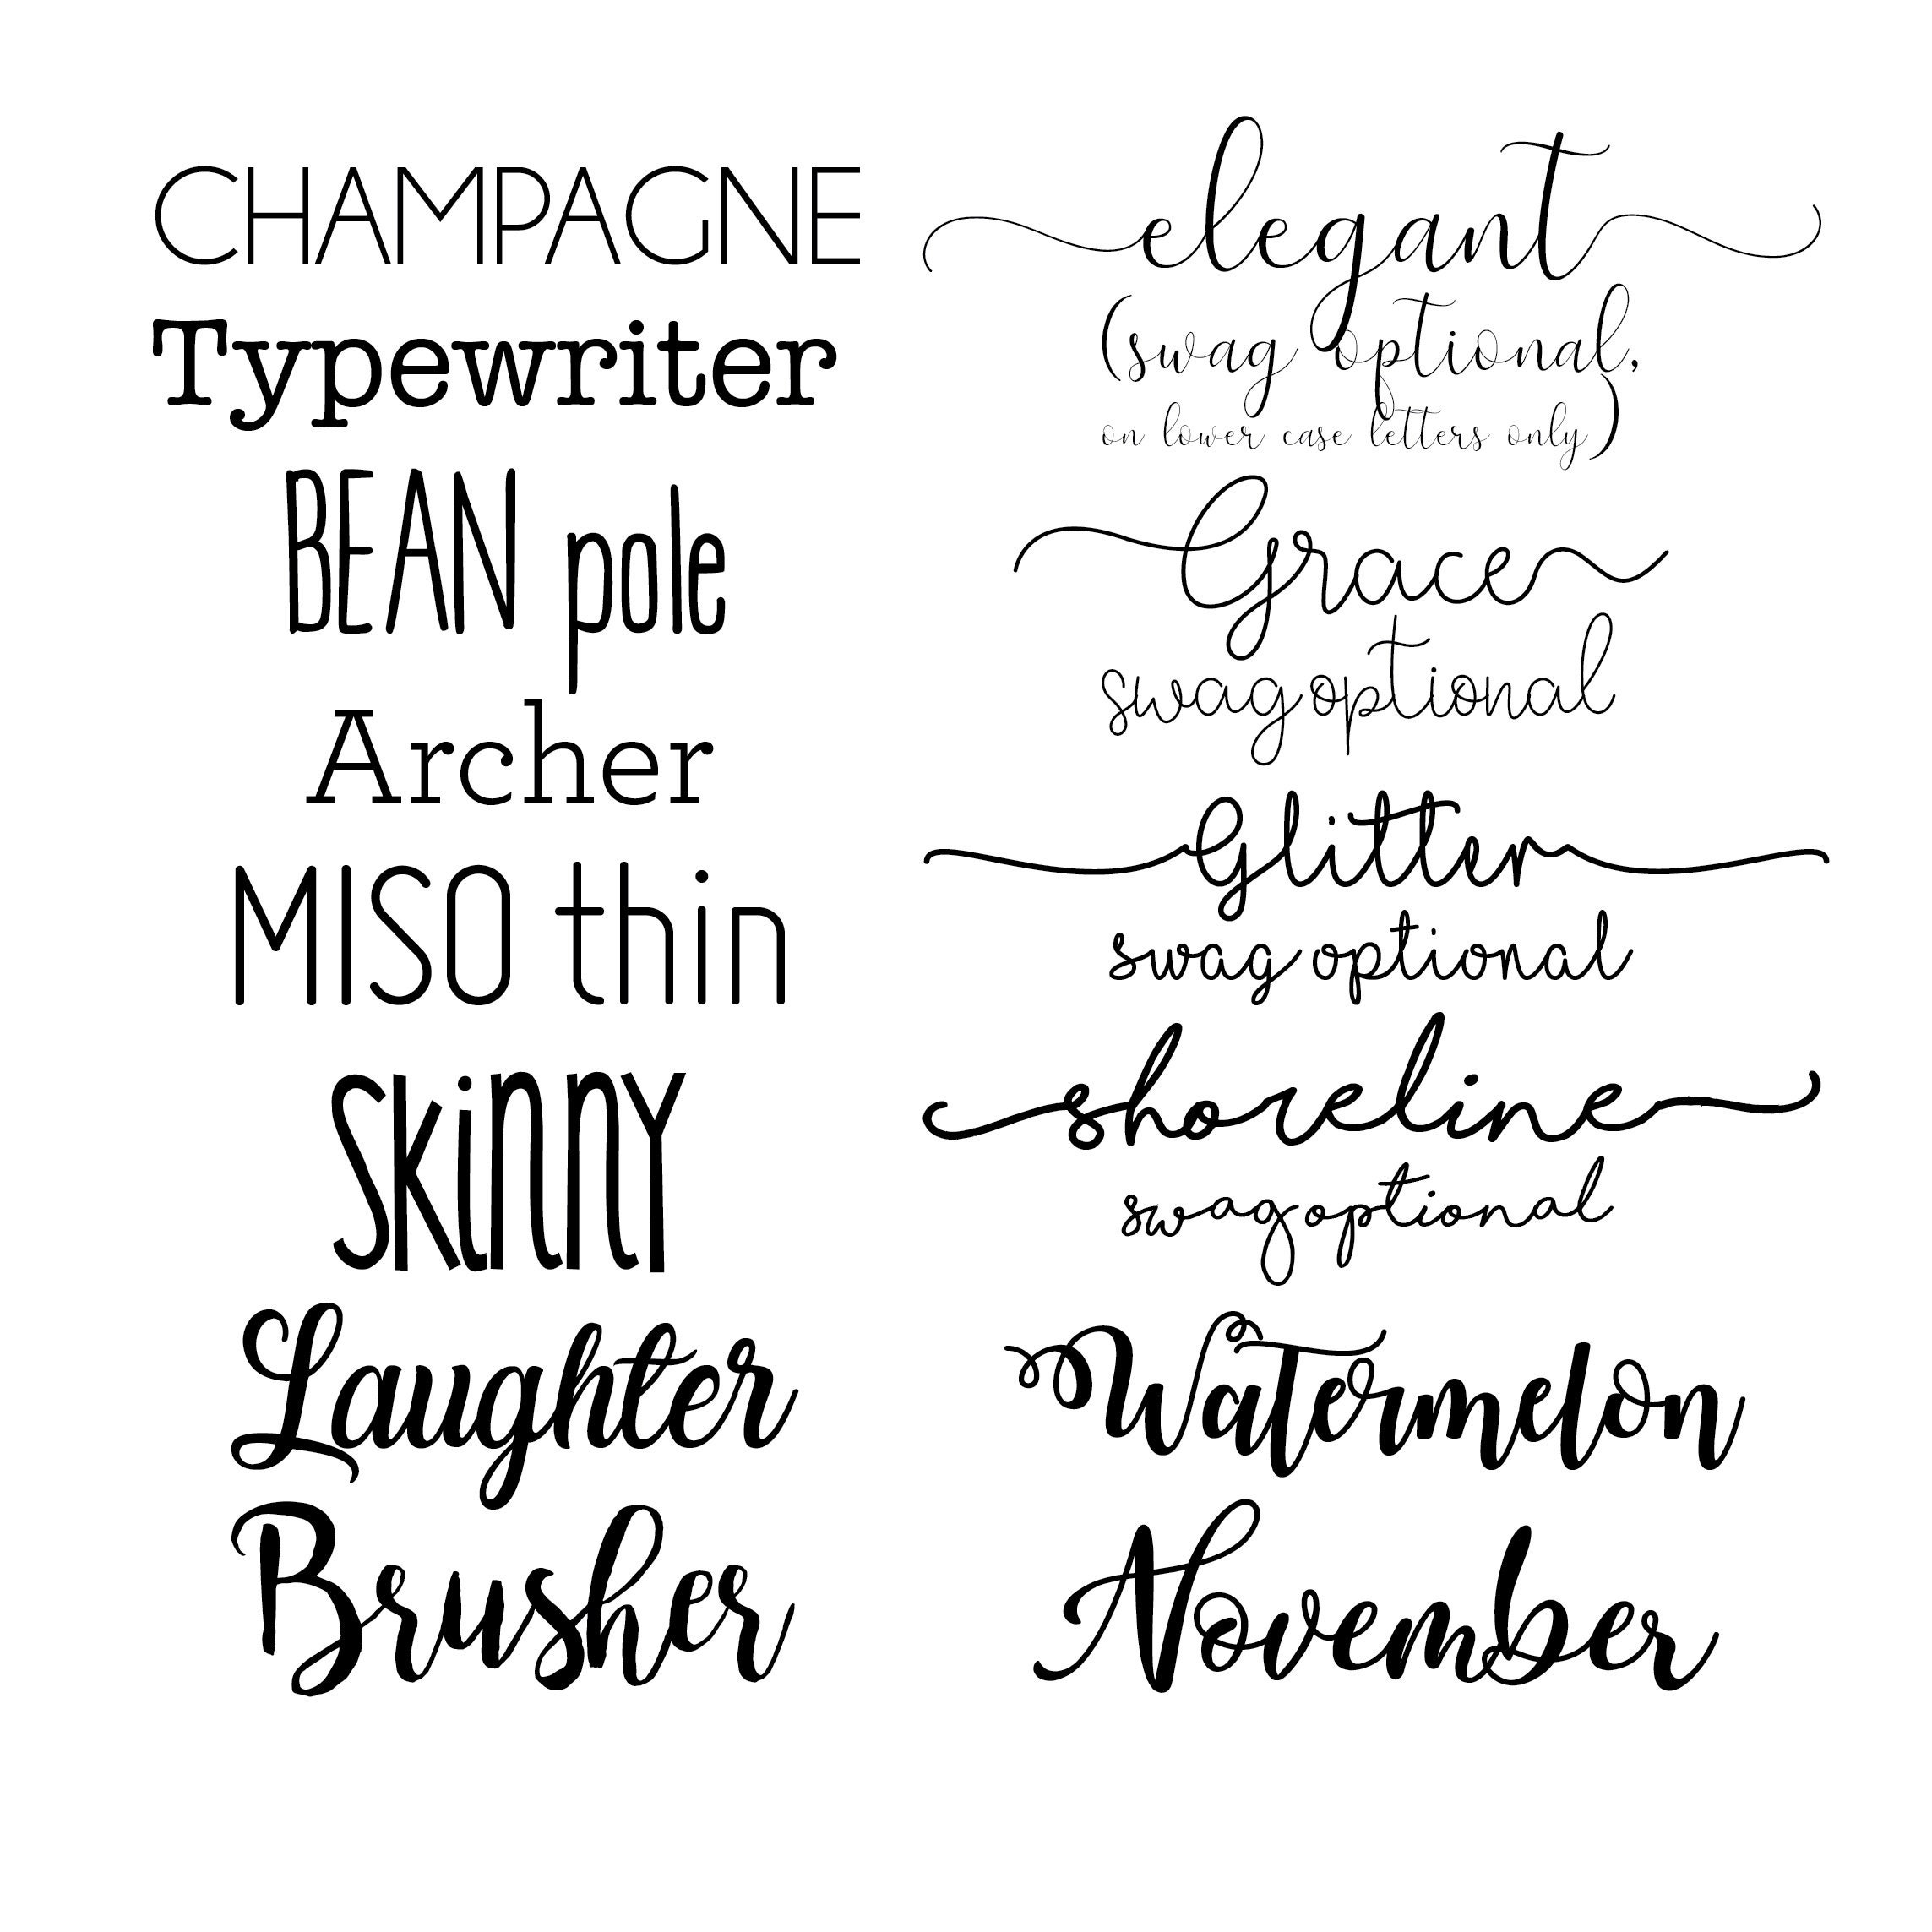 CHAMPAGNE
Typewriter
BEAN pole
Archer
MISO thin
SKiNNY
Laughter
Brusher
elegant
(swag optional,
on lower case letters only)
Grace
swag optional
Glitter
swag optional
shoreline
swag optional
Watermelon
November